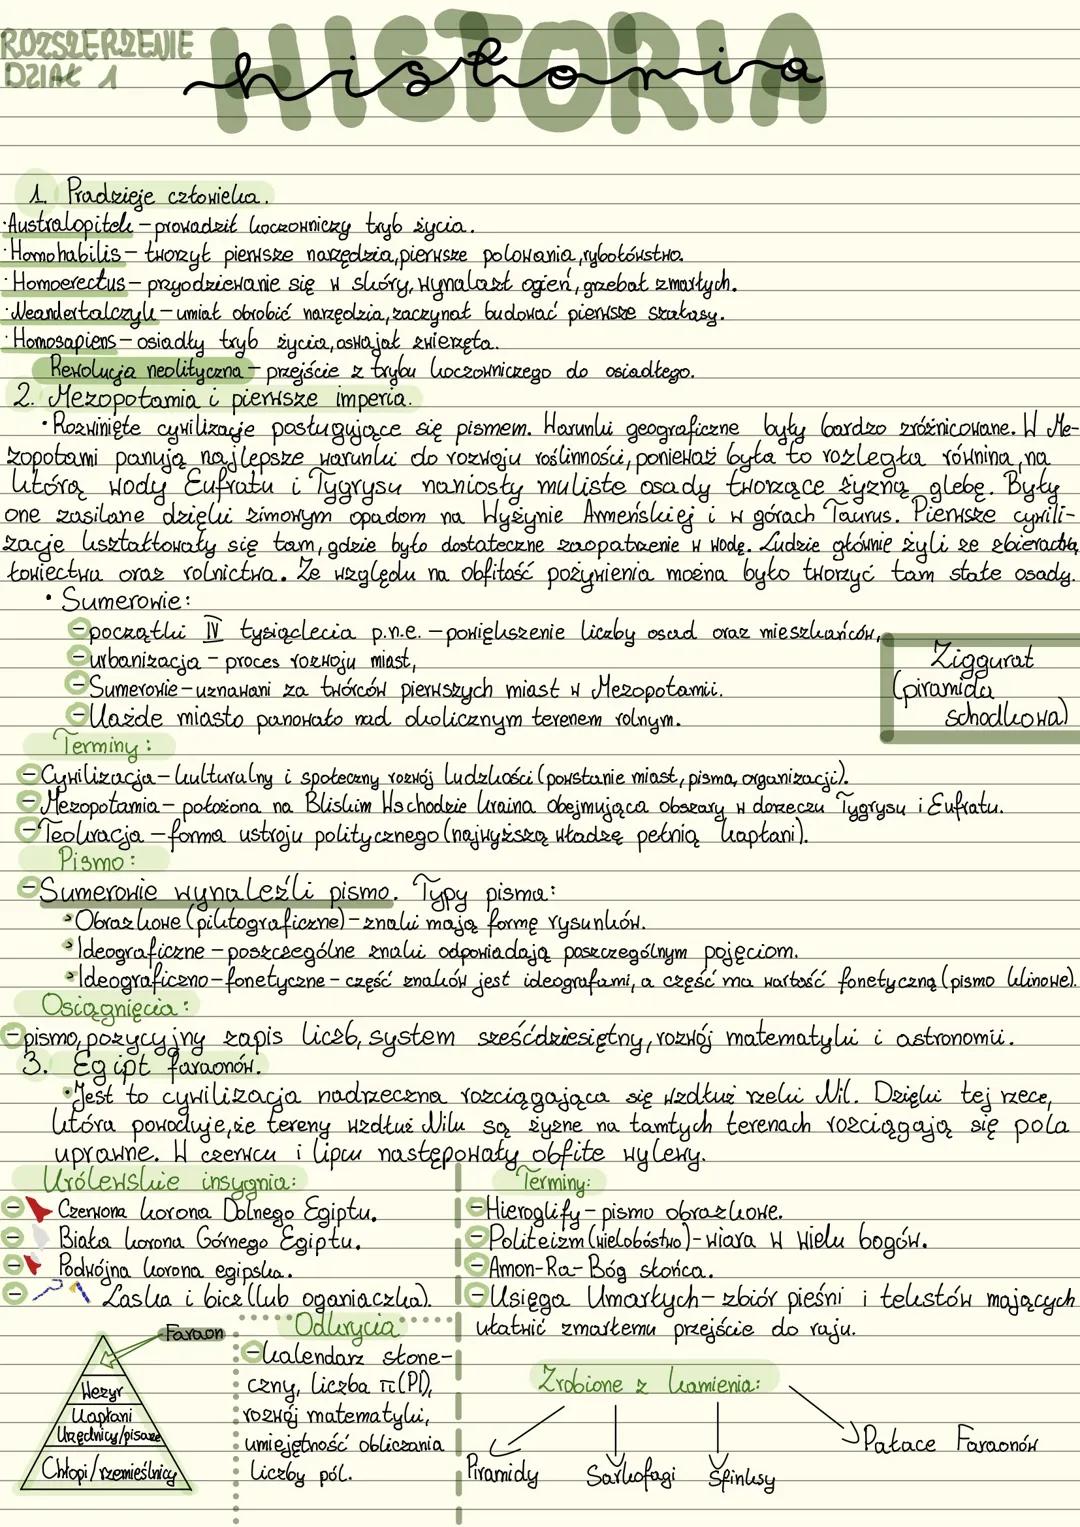 ROZSZERZENIE
DZIAŁ 1
HISTORIA
historia
1. Pradzieje człowieka.
·Australopitek – prowadził koczowniczy tryb życia.
·Homohabilis – tworzył pierwsze narzędzia, pierwsze polowania, rybołówstwo.
·Homoerectus – przyodziewanie się w skóry, wynalazł ogień, grzebał zmarłych.
·Neandertalczyk – umiał obrobić narzędzia, zaczynał budować pierwsze szałasy.
·Homosapiens – osiadły tryb życia, oswajał zwierzęta.
Rewolucja neolityczna – przejście z trybu koczowniczego do osiadłego.
2. Mezopotamia i pierwsze imperia.
·Rozwinięte cywilizacje posługujące się pismem. Warunki geograficzne były bardzo zróżnicowane. W Me-
zopotami panują najlepsze warunki do rozwoju roślinności, ponieważ była to rozległa równina, na
którą wody Eufratu i Tygrysu naniosły muliste osady tworzące żyzną glebę. Były
one zasilane dzięki zimowym opadom na Wyżynie Armeńskiej i w górach Taurus. Pierwsze cywili-
zacje kształtowały się tam, gdzie było dostateczne zaopatrzenie w wodę. Ludzie głównie żyli ze zbieractwa,
łowiectwa oraz rolnictwa. Ze względu na obfitość pożywienia można było tworzyć tam stałe osady.
• Sumerowie:
– początki IV tysiąclecia p.n.e. – powiększenie liczby osad oraz mieszkańców,
– urbanizacja – proces rozwoju miast,
– Sumerowie – uznawani za twórców pierwszych miast w Mezopotamii.
– Każde miasto panowało nad okolicznym terenem rolnym.
Ziggurat
(piramida
schodkowa)
Terminy:
– Cywilizacja – kulturalny i społeczny rozwój ludzkości (powstanie miast, pisma, organizacji).
– Mezopotamia – położona na Bliskim Wschodzie kraina obejmująca obszary w dorzeczu Tygrysu i Eufratu.
– Teokracja – forma ustroju politycznego (najwyższą władzę pełnią kapłani).
Pismo:
– Sumerowie wynaleźli pismo. Typy pisma:
• Obrazkowe (piktograficzne) – znaki mają formę rysunków.
• Ideograficzne – poszczególne znaki odpowiadają poszczególnym pojęciom.
• Ideograficzno-fonetyczne – część znaków jest ideografami, a część ma wartość fonetyczną (pismo klinowe).
Osiągnięcia:
– pismo, pozycyjny zapis liczb, system sześćdziesiętny, rozwój matematyki i astronomii.
3. Egipt faraonów.
•Jest to cywilizacja nadrzeczna rozciągająca się wzdłuż rzeki Nil. Dzięki tej rzece,
która powoduje, że tereny wzdłuż Nilu są żyzne na tamtych terenach rozciągają się pola
uprawne. W czerwcu i lipcu następowały obfite wylewy.
Królewskie insygnia:
– Czerwona korona Dolnego Egiptu.
– Biała korona Górnego Egiptu.
– Podwójna korona egipska.
– Laska i bicz (lub oganiaczka).
Terminy:
– Hieroglify – pismo obrazkowe.
– Politeizm (wielobóstwo) – wiara w wielu bogów.
– Amon-Ra – Bóg słońca.
– Księga Umarłych – zbiór pieśni i tekstów mających
ułatwić zmarłemu przejście do raju.
Faraon
Wezyr
Kapłani
Urzędnicy/pisarze
Chłopi/rzemieślnicy
Odkrycia
– kalendarz słone-
czny, liczba π (PI),
rozwój matematyki,
umiejętność obliczania
liczby pól.
Zrobione z kamienia:
Piramidy Sarkofagi Sfinksy Pałace Faraonów